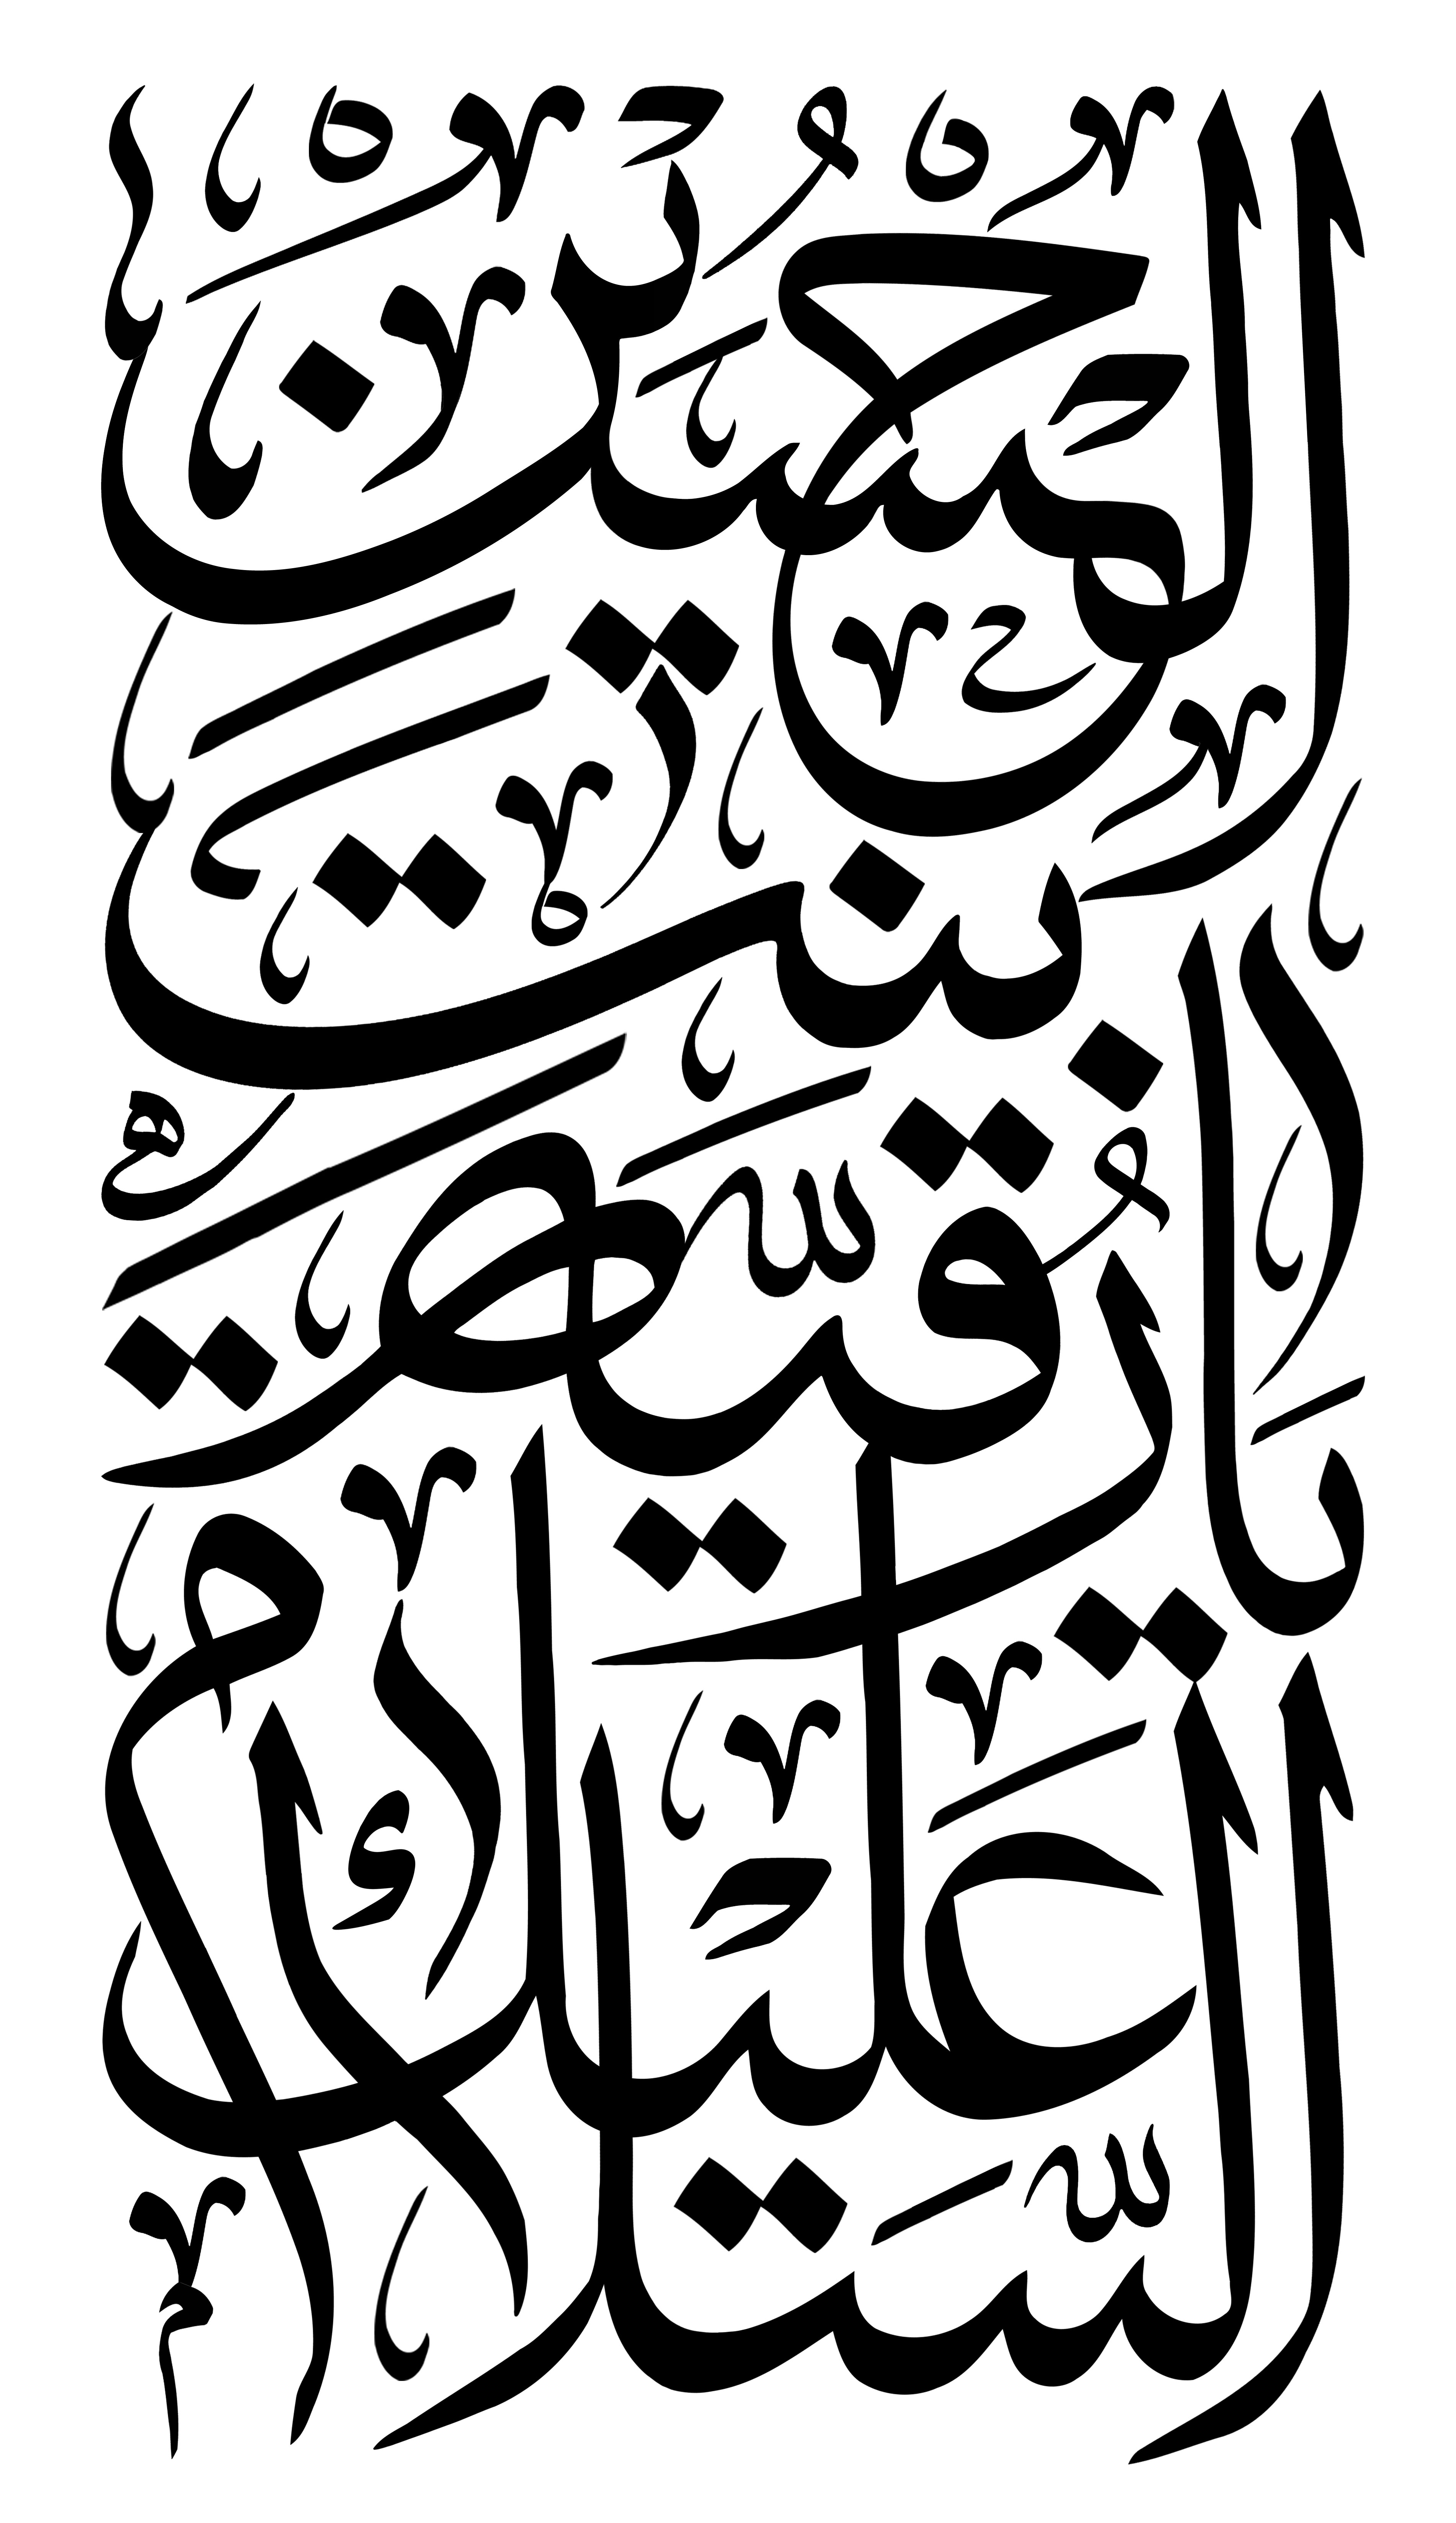 السلام
عليك
يا
رقية
بنت
الحسين